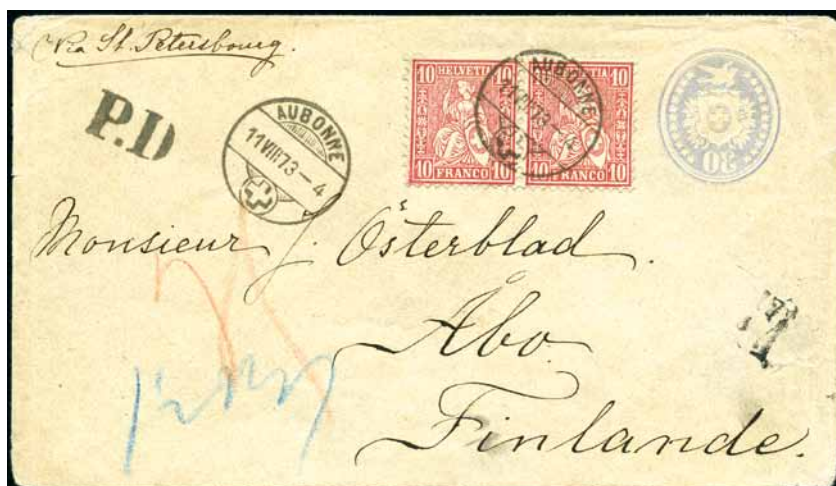 Via St. Petersbourg.
P.D
AUBONNE
11 VIII 73 – 4
10 HELVETIA 10
10 FRANCO 10
AUBONNE
11 VIII 73 – 4
10 HELVETIA 10
10 FRANCO 10
30
Monsieur J. Österblad.
Åbo.
Finlande.